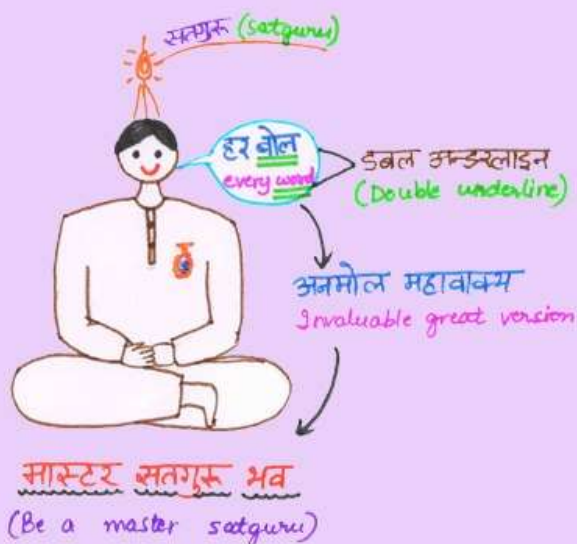 सतगुरु (satguru)
हर बोल
every word
डबल अन्डरलाइन
(Double underline)
अनमोल महावाक्य
Invaluable great version
मास्टर सतगुरु भव
(Be a master satguru)